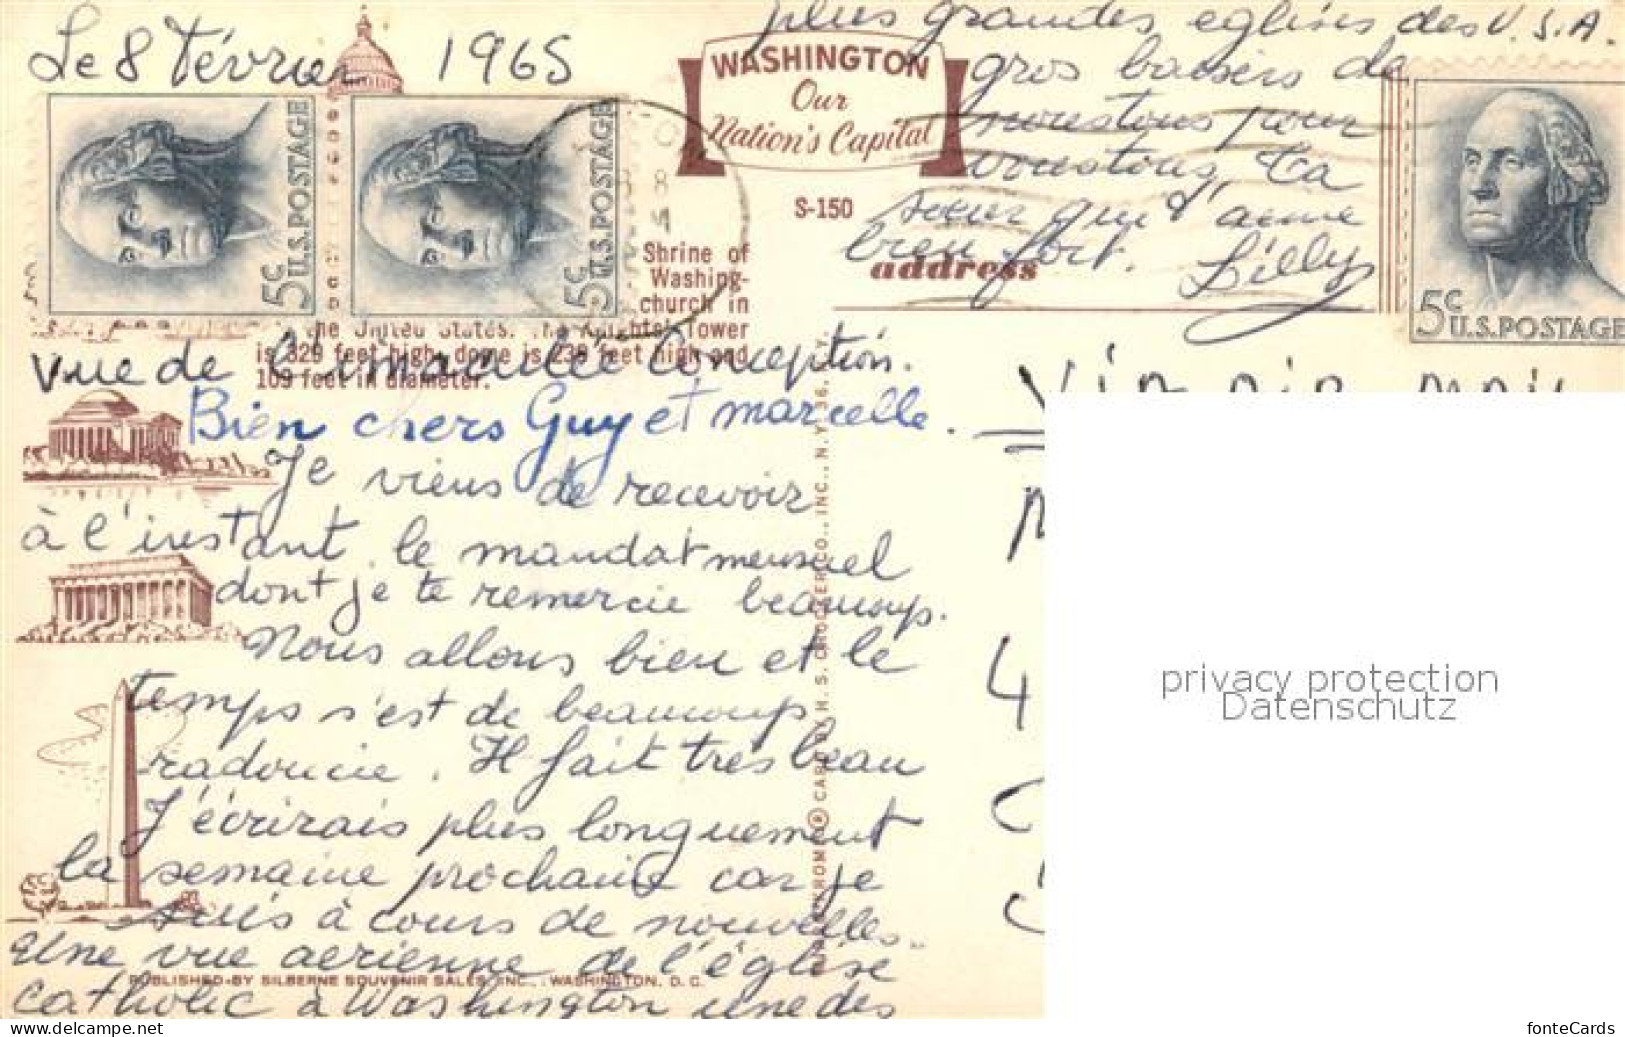 Le 8 Février 1965
WASHINGTON
Our
Nation's Capital
S-150
U.S.POSTAGE 5c
U.S.POSTAGE 5c
5c U.S.POSTAGE
Shrine of
Washing-
church in
the United States. The Knights' Tower
is 329 feet high, dome is 238 feet high and
109 feet in diameter.
address
vue de l'imaculée Conception.
Bien chers Guy et marcelle.
Je viens de recevoir
à l'instant le mandat mensuel
dont je te remercie beaucoup.
Nous allons bien et le
temps s'est de beaucoup
radoucie. Il fait très beau
J'écrirais plus longuement
la semaine prochaine car je
suis à cours de nouvelles
Une vue aerienne de l'église
catholic à Washington une des
plus grandes eglises des U.S.A.
gros baisers de
noustous pour
voustous, ta
soeur qui t'aime
bien fort. Lilly
PUBLISHED BY SILBERNE SOUVENIR SALES, INC., WASHINGTON, D. C.
CARD BY H. S. CROCKER CO., INC., N. Y. 36, N. Y.
privacy protection
Datenschutz
www.delcampe.net
fonteCards